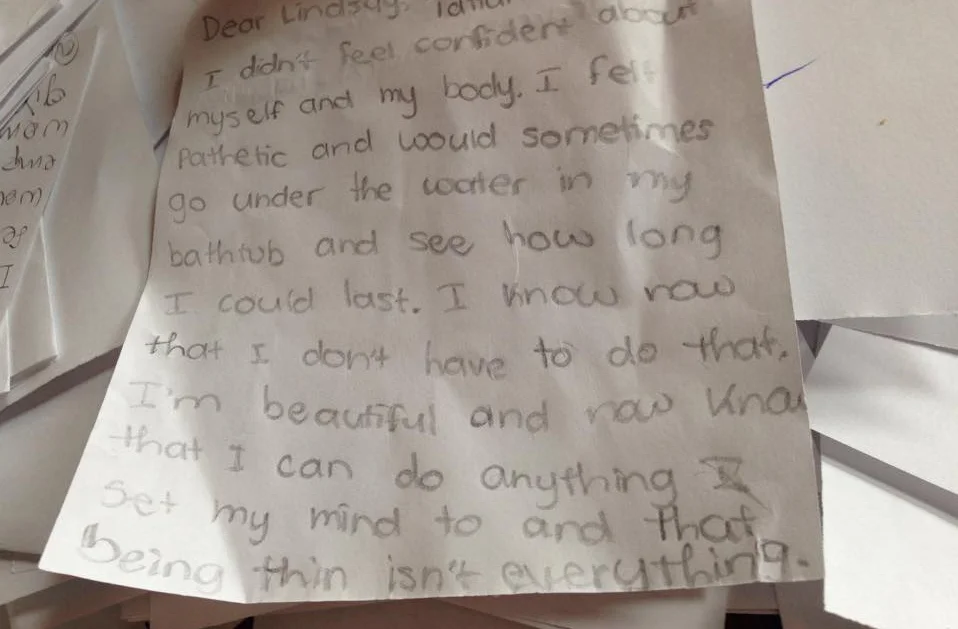 Dear Lindsay.
I didn't feel confident about
myself and my body. I felt
pathetic and would sometimes
go under the water in my
bathtub and see how long
I could last. I know now
that I don't have to do that.
I'm beautiful and now know
that I can do anything I
set my mind to and that
being thin isn't everything.